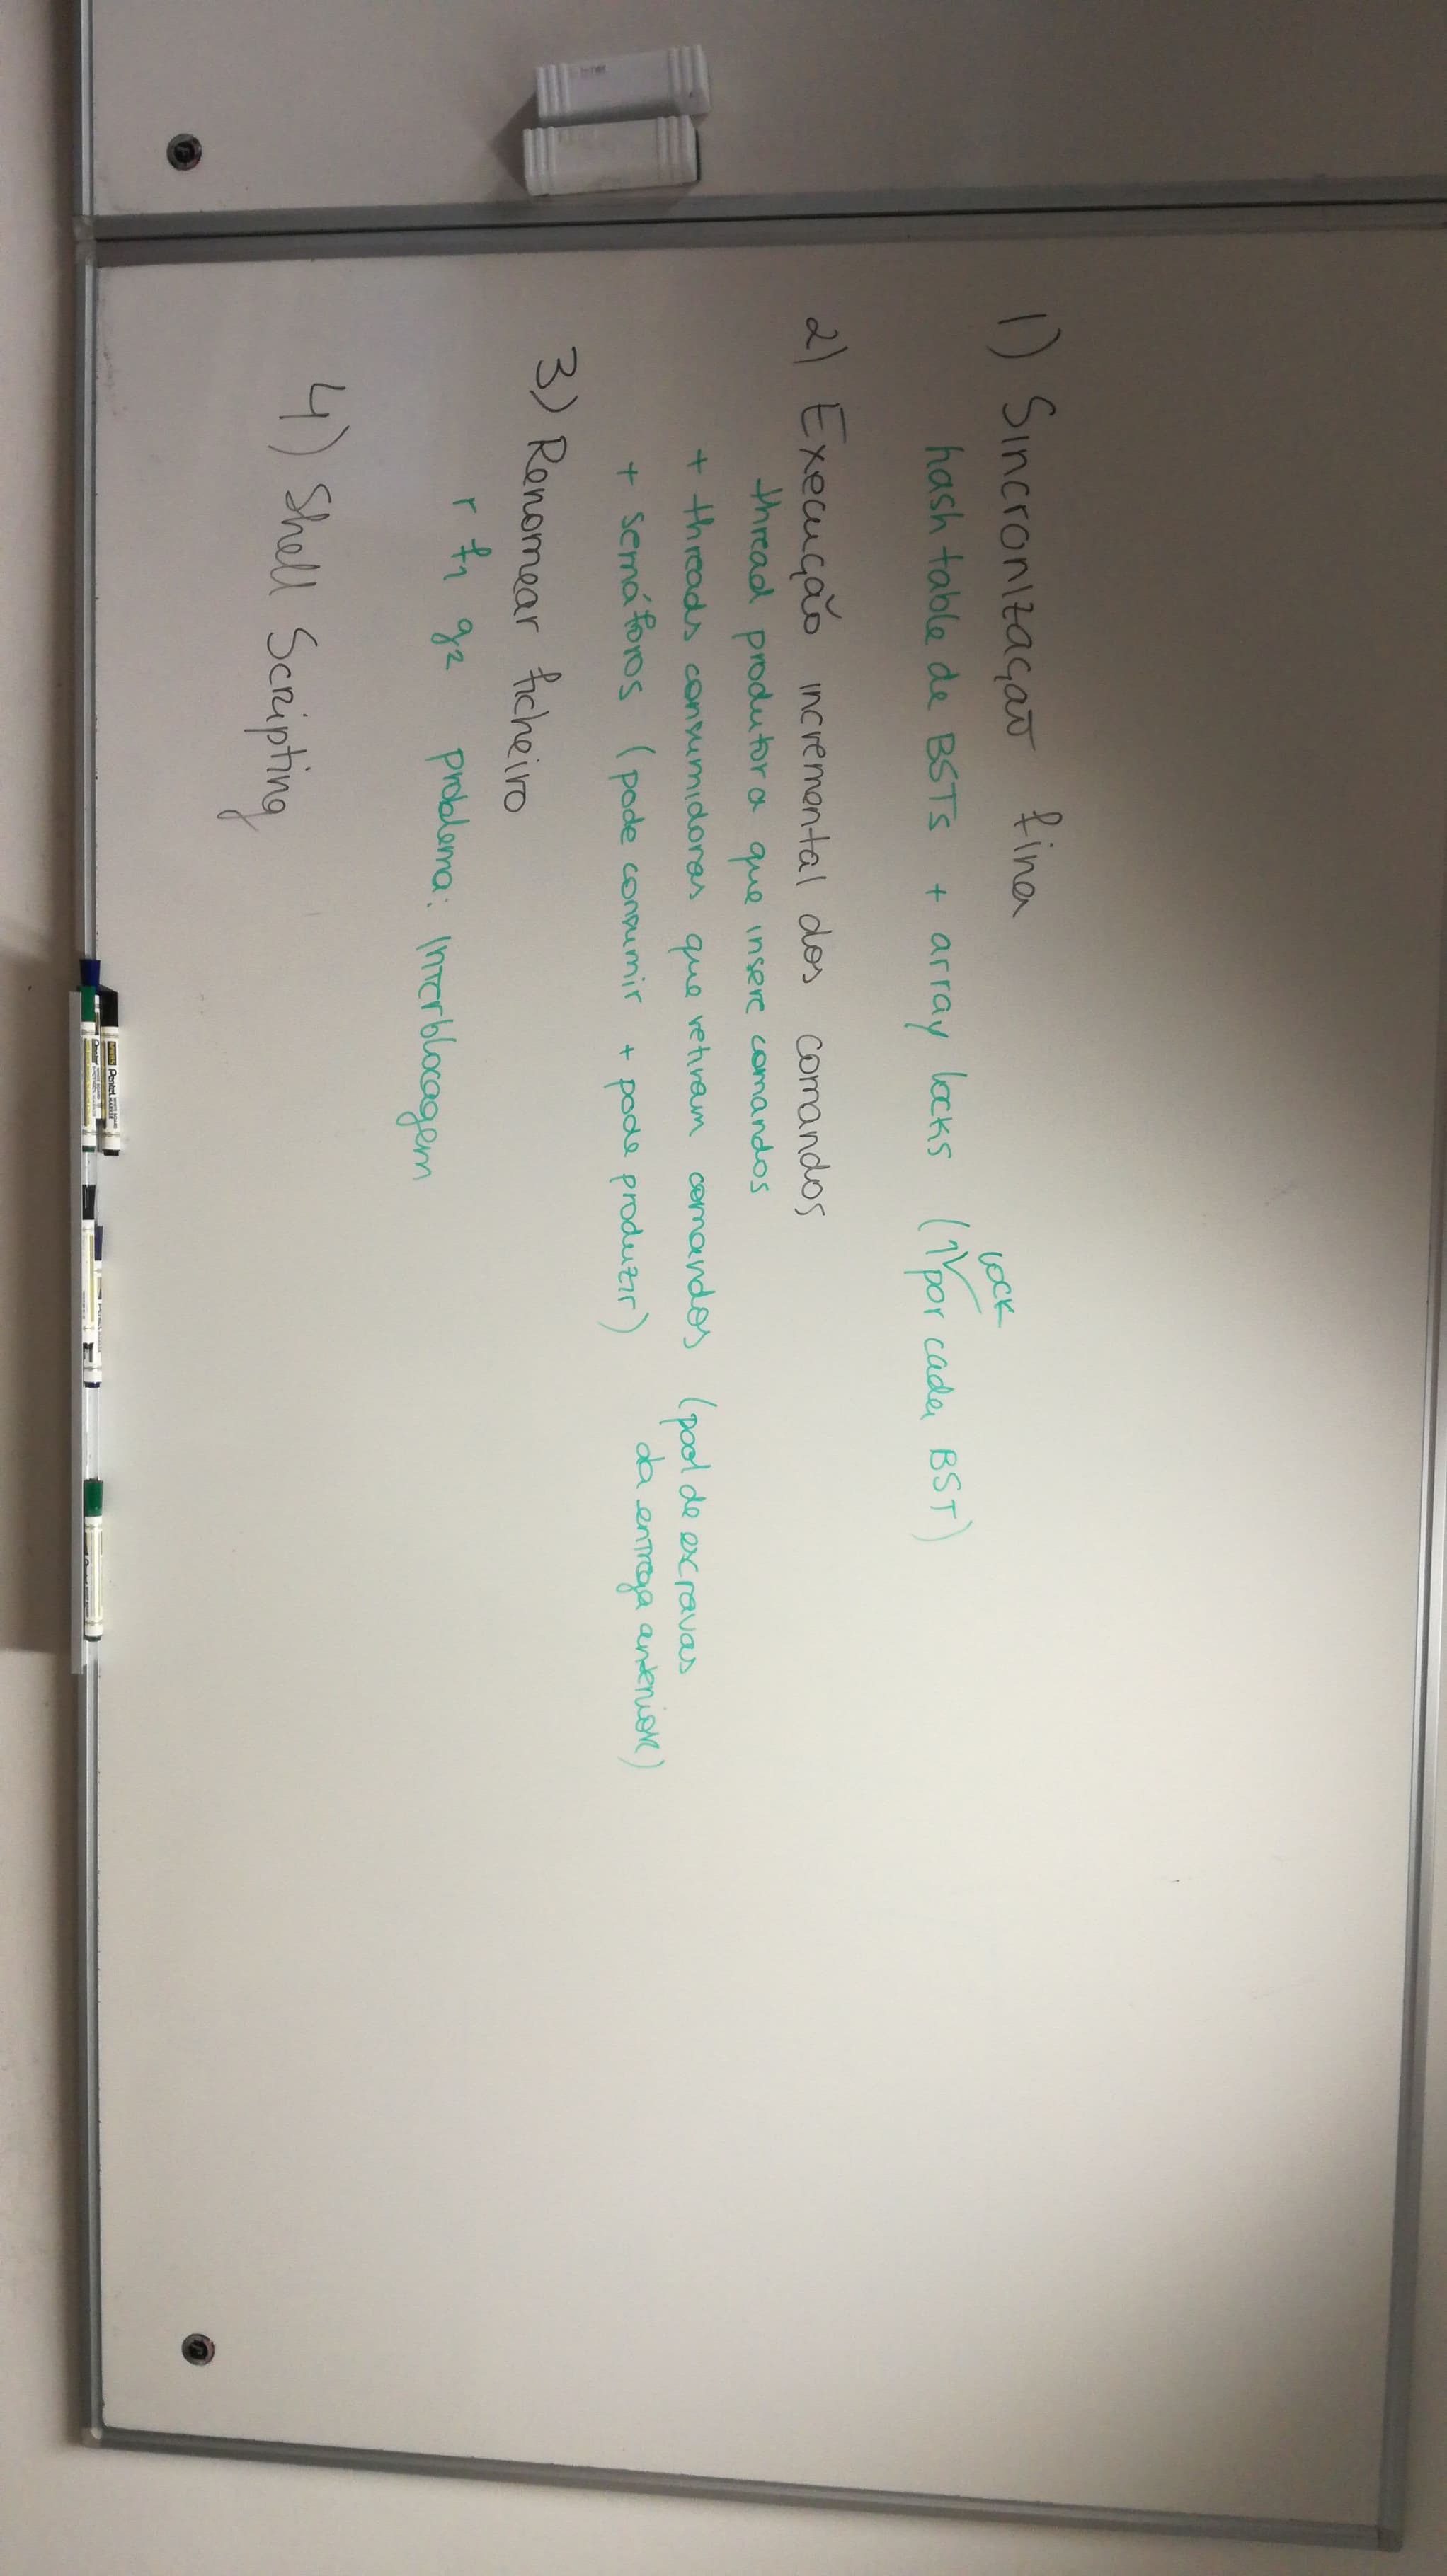 1) Sincronização fina
hash table de BSTs + array locks (1 lock por cada BST)
2) Execução incremental dos comandos
thread produtora que insere comandos
+ threads consumidoras que retiram comandos (pool de escravas
da entrega anterior)
+ semáforos (pode consumir + pode produzir)
3) Renomear ficheiro
r f1 g2 problema: Interblocagem
4) Shell Scripting
Pentel